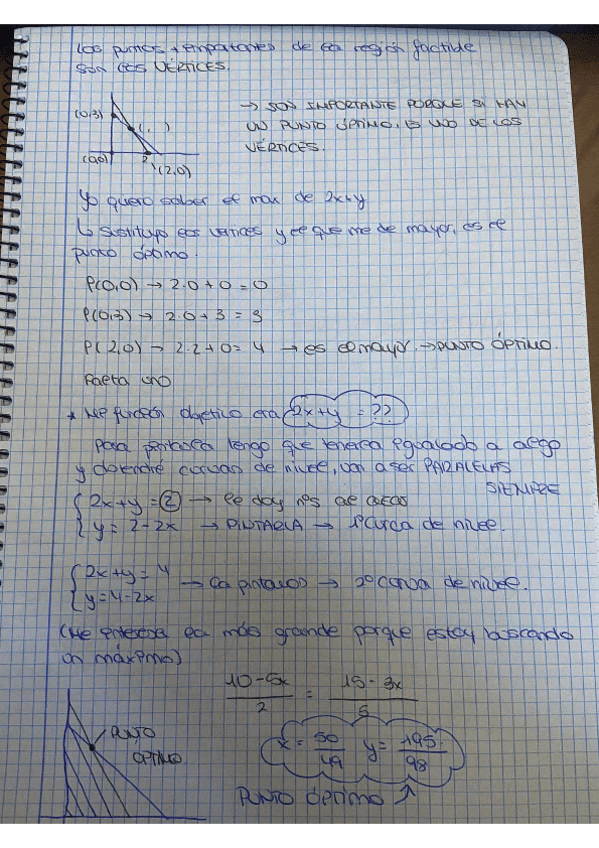 Los puntos + importantes de la región factible
son los VÉRTICES.
→ SON IMPORTANTE PORQUE SI HAY
UN PUNTO ÓPTIMO, ES UNO DE LOS
VÉRTICES.
(0,3)
( , )
(0,0)
2
(2,0)
Yo quiero saber el max de 2x+y
↳ Sustituyo los vértices y el que me de mayor, es el
punto óptimo.
P(0,0) → 2·0+0=0
P(0,3) → 2·0+3=3
P(2,0) → 2·2+0=4 → es el mayor → PUNTO ÓPTIMO.
Falta uno
* Mi función objetivo era 2x+y = ??
Para pintarla tengo que tenerla igualado a algo
y obtendré curvas de nivel, van a ser PARALELAS
SIEMPRE
2x+y=2 → le doy nºs al azar
y=2-2x → PINTARLA → 1ª curva de nivel.
2x+y=4
y=4-2x → la pintamos → 2ª curva de nivel.
(Me interesa la más grande porque estoy buscando
un máximo)
10-5x/2 = 15-3x/5
PUNTO
ÓPTIMO
x= 50/49 y= 195/98
PUNTO ÓPTIMO